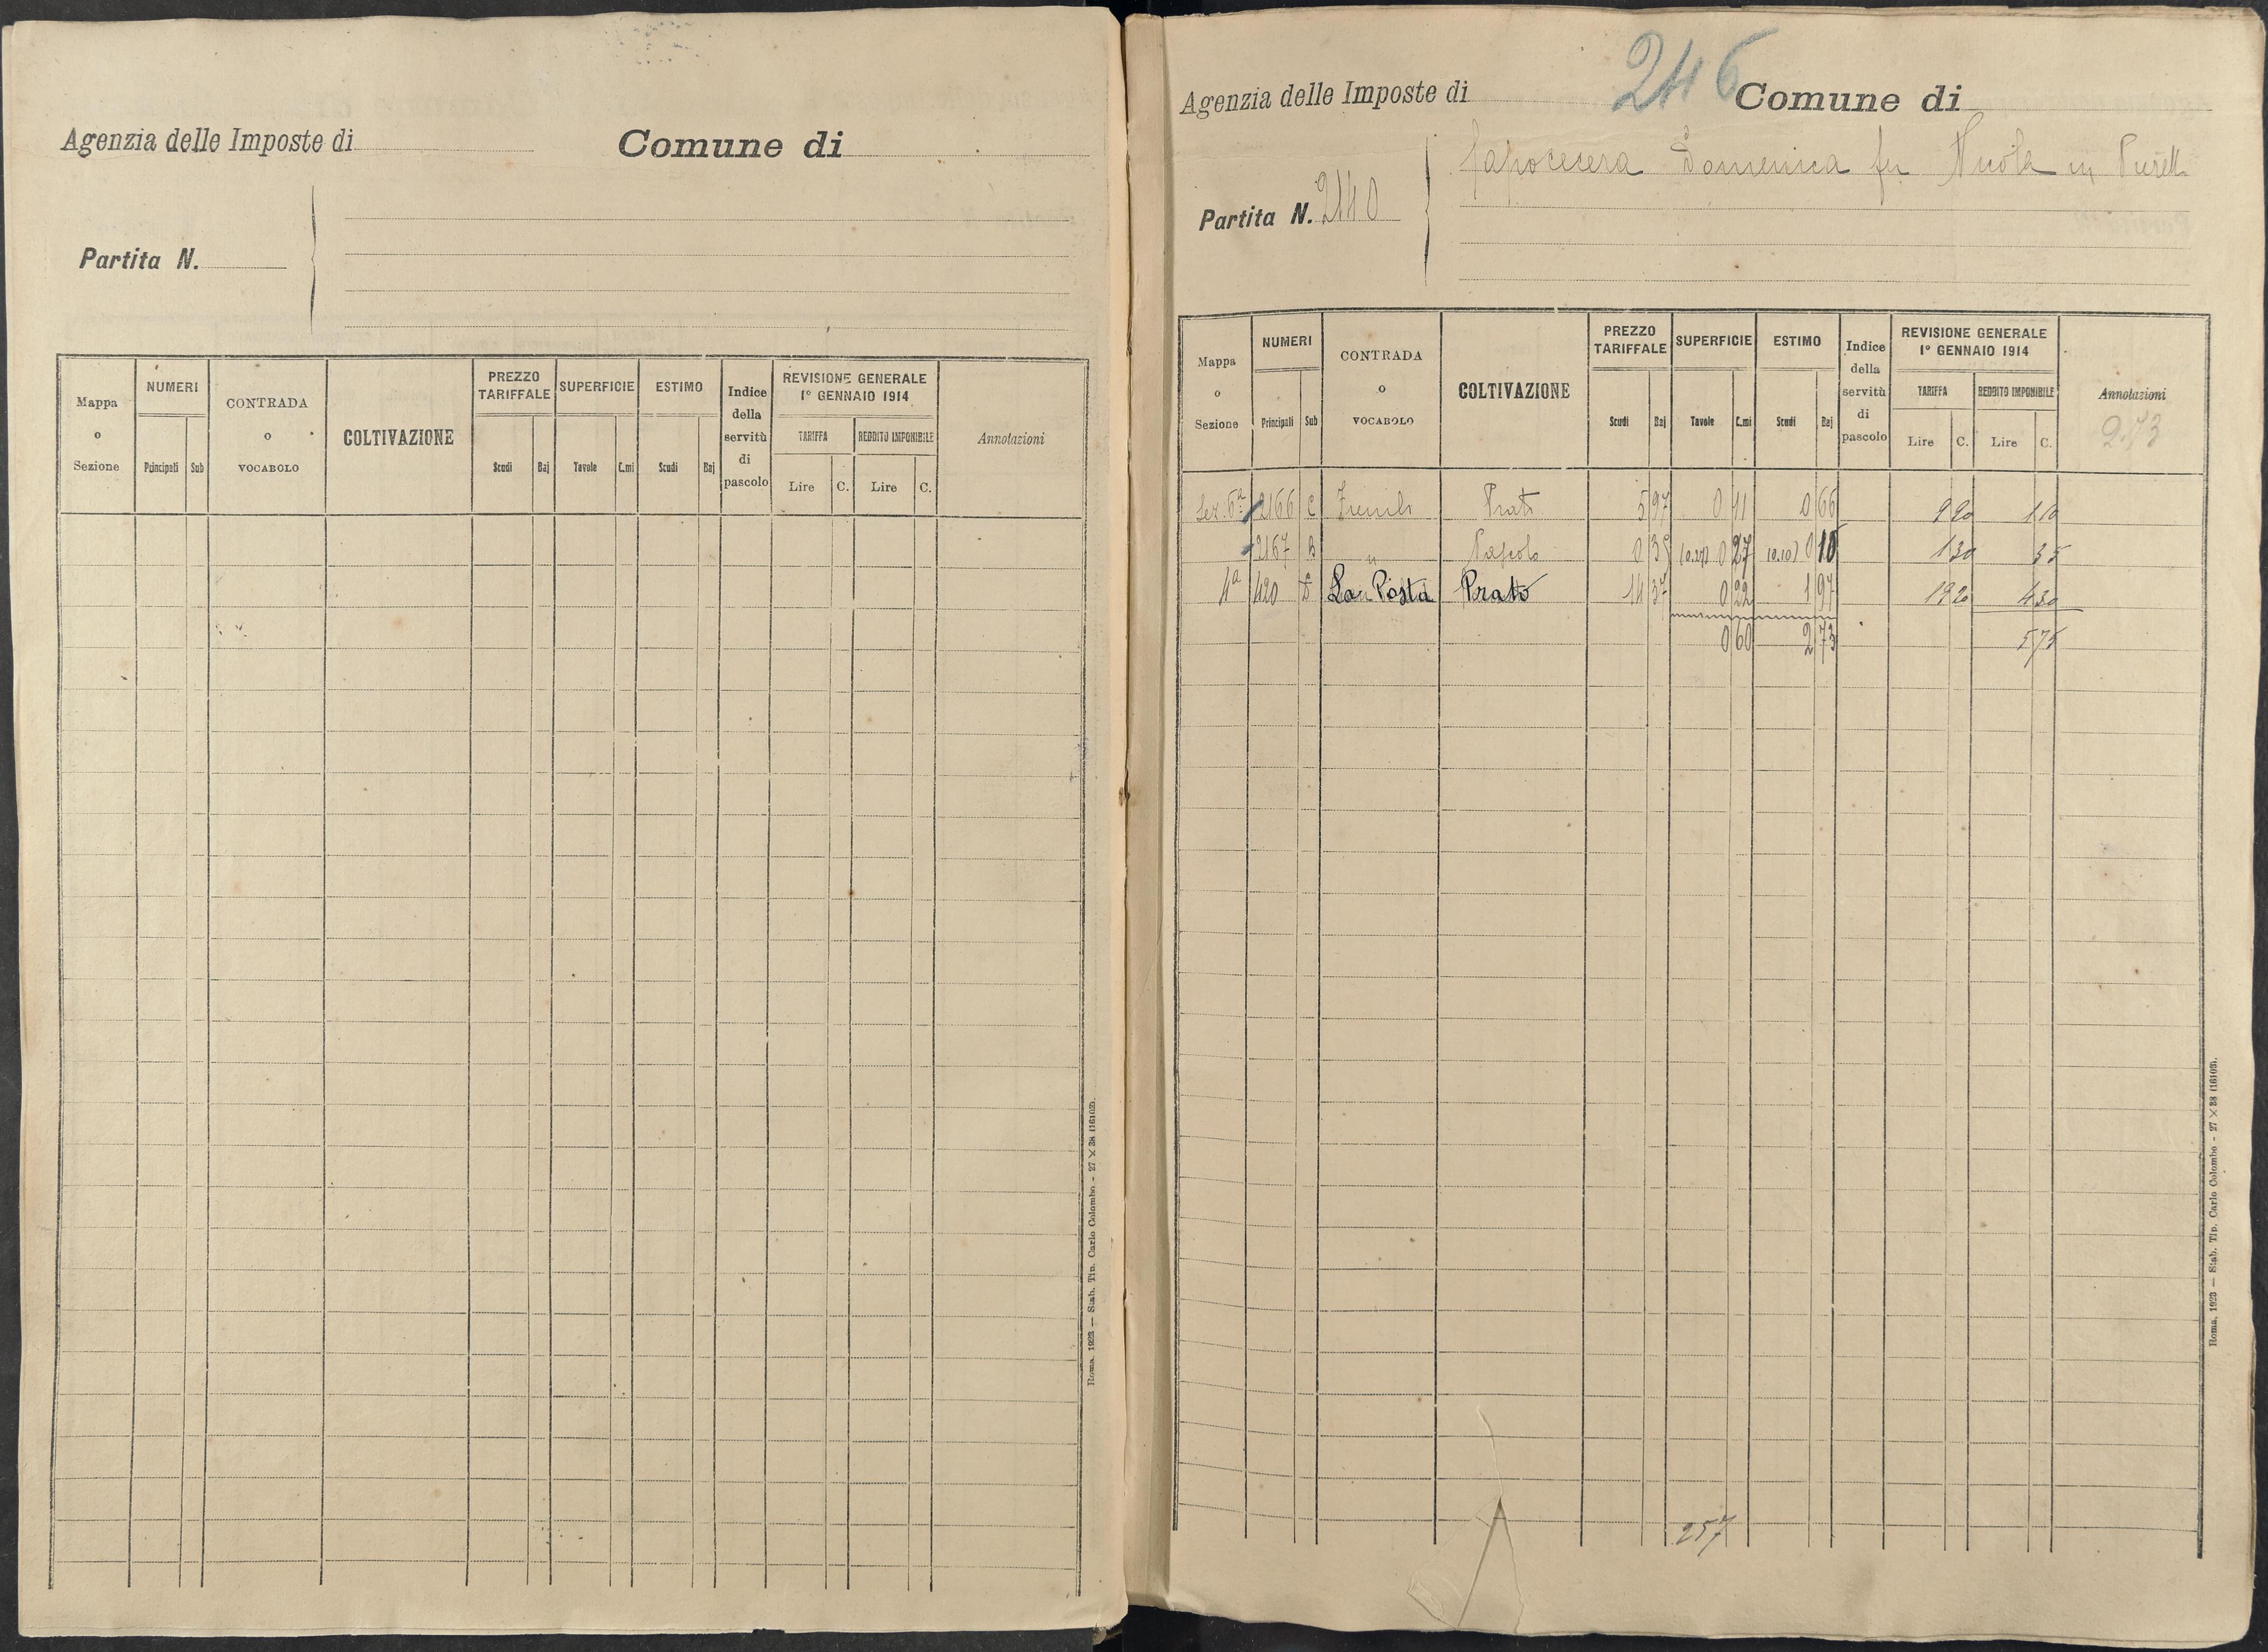 Agenzia delle Imposte di
Comune di
Partita N.
Mappa o Sezione
NUMERI
Principali
Sub
CONTRADA o VOCABOLO
COLTIVAZIONE
PREZZO TARIFFALE
Scudi
Baj
SUPERFICIE
Tavole
C.mi
ESTIMO
Scudi
Baj
Indice della servitù di pascolo
REVISIONE GENERALE 1° GENNAIO 1914
TARIFFA
Lire
C.
REDDITO IMPONIBILE
Lire
C.
Annotazioni
Roma, 1923 — Stab. Tip. Carlo Colombo - 27 × 38 (16103).
246
Agenzia delle Imposte di
Comune di
Partita N. 2140
Capocecera Domenica fu Nicola in
Mappa o Sezione
NUMERI
Principali
Sub
CONTRADA o VOCABOLO
COLTIVAZIONE
PREZZO TARIFFALE
Scudi
Baj
SUPERFICIE
Tavole
C.mi
ESTIMO
Scudi
Baj
Indice della servitù di pascolo
REVISIONE GENERALE 1° GENNAIO 1914
TARIFFA
Lire
C.
REDDITO IMPONIBILE
Lire
C.
Annotazioni
2.73
Sez. 6ª 2166 C Prato 5 97 0 11 0 66 9 20 1 10
2167 B " Pascolo 0 39 (0.27) 0 27 (0.10) 0 10 1 30 35
4ª 420 La Posta Prato 14 37 0 22 1 97 19 20 4 30
0 60 2 73 5 75
257
Roma, 1923 — Stab. Tip. Carlo Colombo - 27 × 38 (16103).